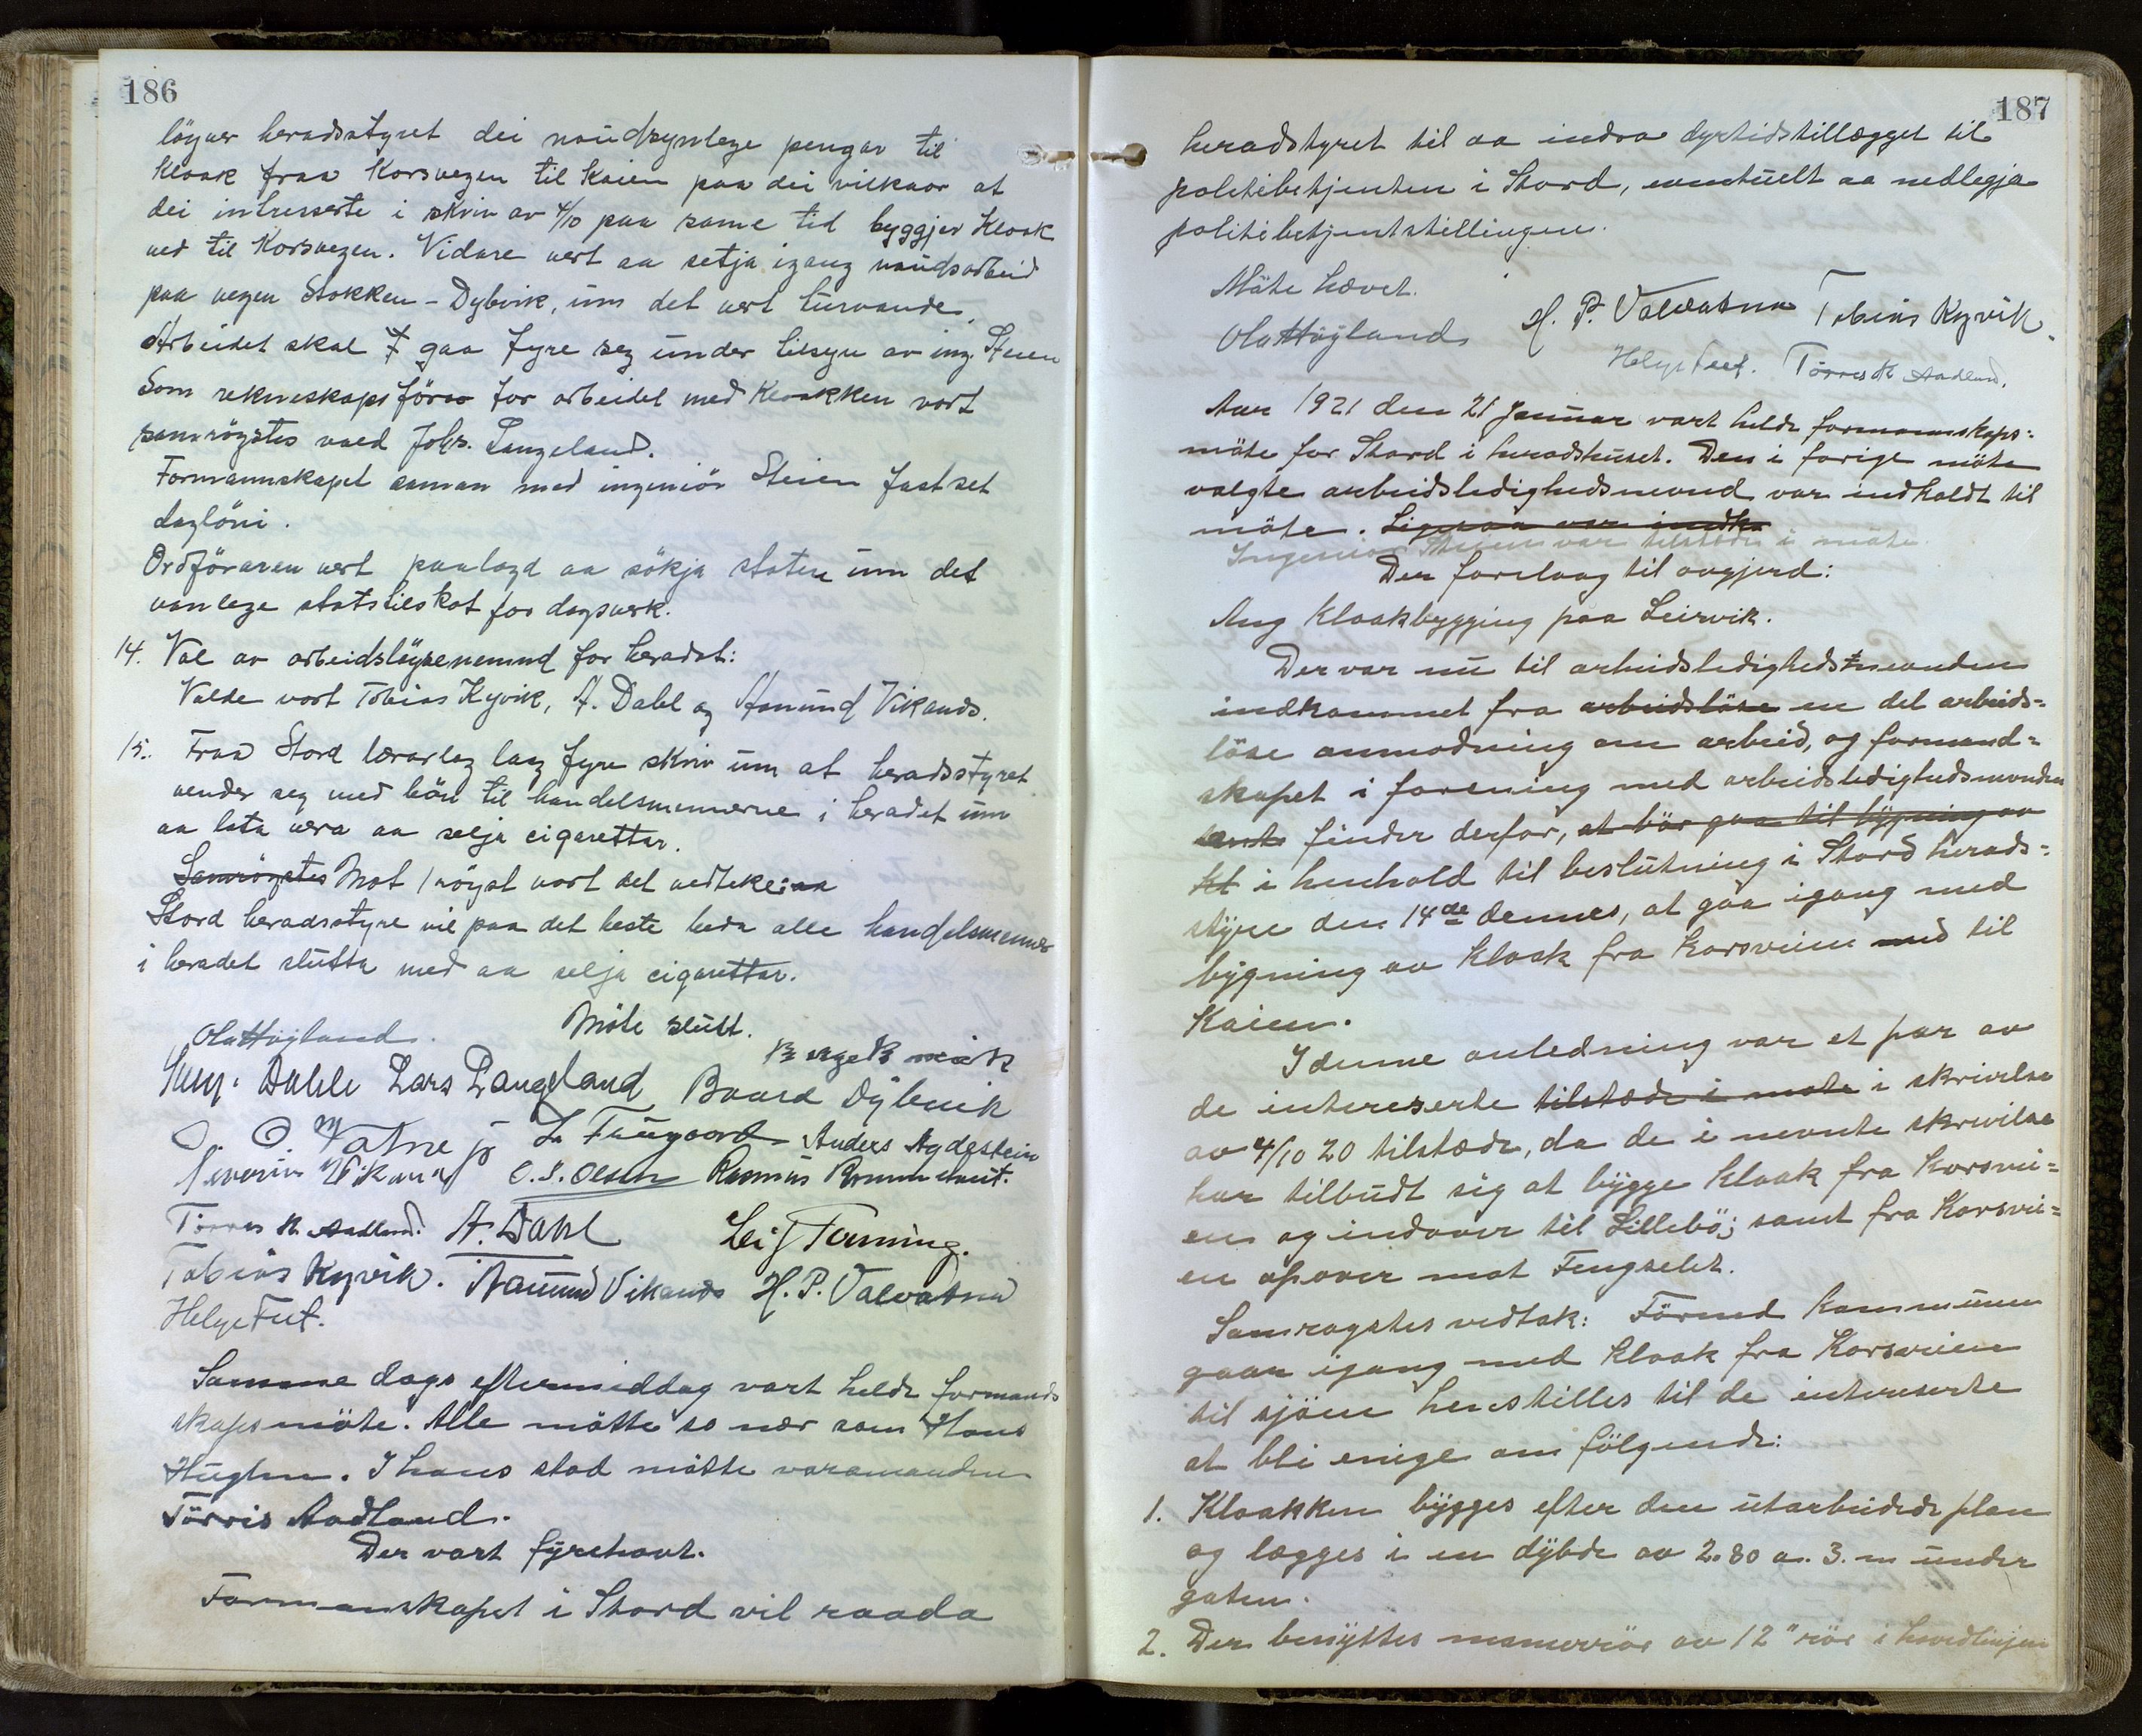 186
löyver heradsstyret dei naudsynlege pengar til
Kloak fraa Korsvegen til Kaien paa dei vilkaar at
dei intresserte i skriv av 4/10 paa same tid byggjer Kloak
ned til Korsvegen. Vidare vert aa setja igang naudsarbeid
paa vegen Stokken - Dybvik, um det vert turvande.
Arbeidet skal gaa fyre seg under tilsyn av ing. Steien
Som rekneskapsförar for arbeidet med Kloakken vart
samröystes vald Johs. Langeland.
Formannskapet saman med ingeniör Steien fastset
daglöni.
Ordföraren vert paalagd aa sökja staten um det
vanlege statstilskot for dagsverk.
14. Val av arbeidslöysenemnd for heradet:
Valde vart Tobias Kyvik, A. Dahl og Aamund Vikanes.
15. Fraa Stord lærarlag laag fyre skriv um at heradsstyret
vender seg med bön til handelsmennerne i heradet um
aa lata vera aa selja cigarettar.
Samröystes Mot 1 röyst vart det vedteke: aa
Stord heradsstyre vil paa det beste beda alle handelsmenner
i heradet slutta med aa selja cigarettar.
Möte slutt.
Ola Höyland.
Sev. Dahle Lars Langeland Baard Dybvik
O. O. Vatne jr L. Frugaard Anders Aydestein
Severin Vikanes O. S. Olsen Rasmus Rommetveit.
Törres K. Aadland. A. Dahl Leif Femming.
Tobias Kyvik. Aamund Vikanes H. P. Valvatna
Helge Feet.
Samme dags eftermiddag vart helde formands
skapsmöte. Alle mötte so nær som Hans
Huglen. I hans stad mötte varamanden
Törris Aadland.
Der vart fyrehavt.
Formanskapet i Stord vil raada
187
heradstyret til aa indra dyrtidstillægget til
politibetjenten i Stord, eventuelt aa nedlegja
politibetjentstillingen.
Möte hævet.
Ola Höyland H. P. Valvatna Tobias Kyvik.
Helge Feet. Törres K Aadland.
Aar 1921 den 21 Januar vart helde formannskaps:
möte for Stord i heradshuset. Den i forige möte
valgte arbeidsledighedsnevnd var indkaldt til
möte. Ligesaa var indka
Ingeniör Steien var tilstede i möte.
Der forelaag til avgjerd:
Ang Kloakbygging paa Leirvik.
Der var nu til arbeidsledighedsnevnden
indkommet fra arbeidslöse en del arbeids=
löse anmodning om arbeid, og formand=
skapet i forening med arbeidsledighedsnevnden
samt finder derfor, at bör gaa til bygning av
kl i henhold til beslutning i Stord herads=
styre den 14de dennes, at gaa igang med
bygning av Kloak fra Korsveien ned til
Kaien.
I denne anledning var et par av
de intereserte tilstæde i möte i skrivelse
av 4/10 20 tilstæde, da de i nevnte skrivelse
har tilbudt sig at bygge kloak fra Korsvei=
en og indover til Lillebö; samt fra Korsvei=
en opover mot Fengselet.
Samrøgstes vedtak: Förend kommunen
gaar igang med kloak fra Korsveien
til sjöen henstilles til de intereserte
at bli enige om fölgende:
1. Kloakken bygges efter den utarbeidede plan
og lægges i en dybde av 2.80 a. 3. m under
gaten.
2. Der benyttes av 12" rör i hovedlinjen